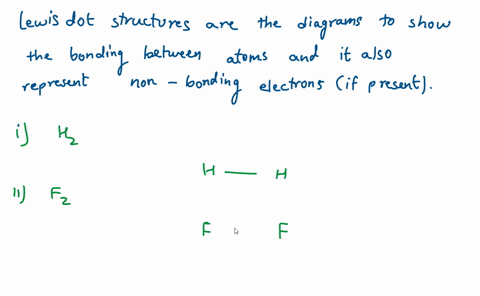 Lewis dot structures are the diagrams to show
the bonding between atoms and it also
represent non-bonding electrons (if present).
i) H₂
H — H
ii) F₂
F F